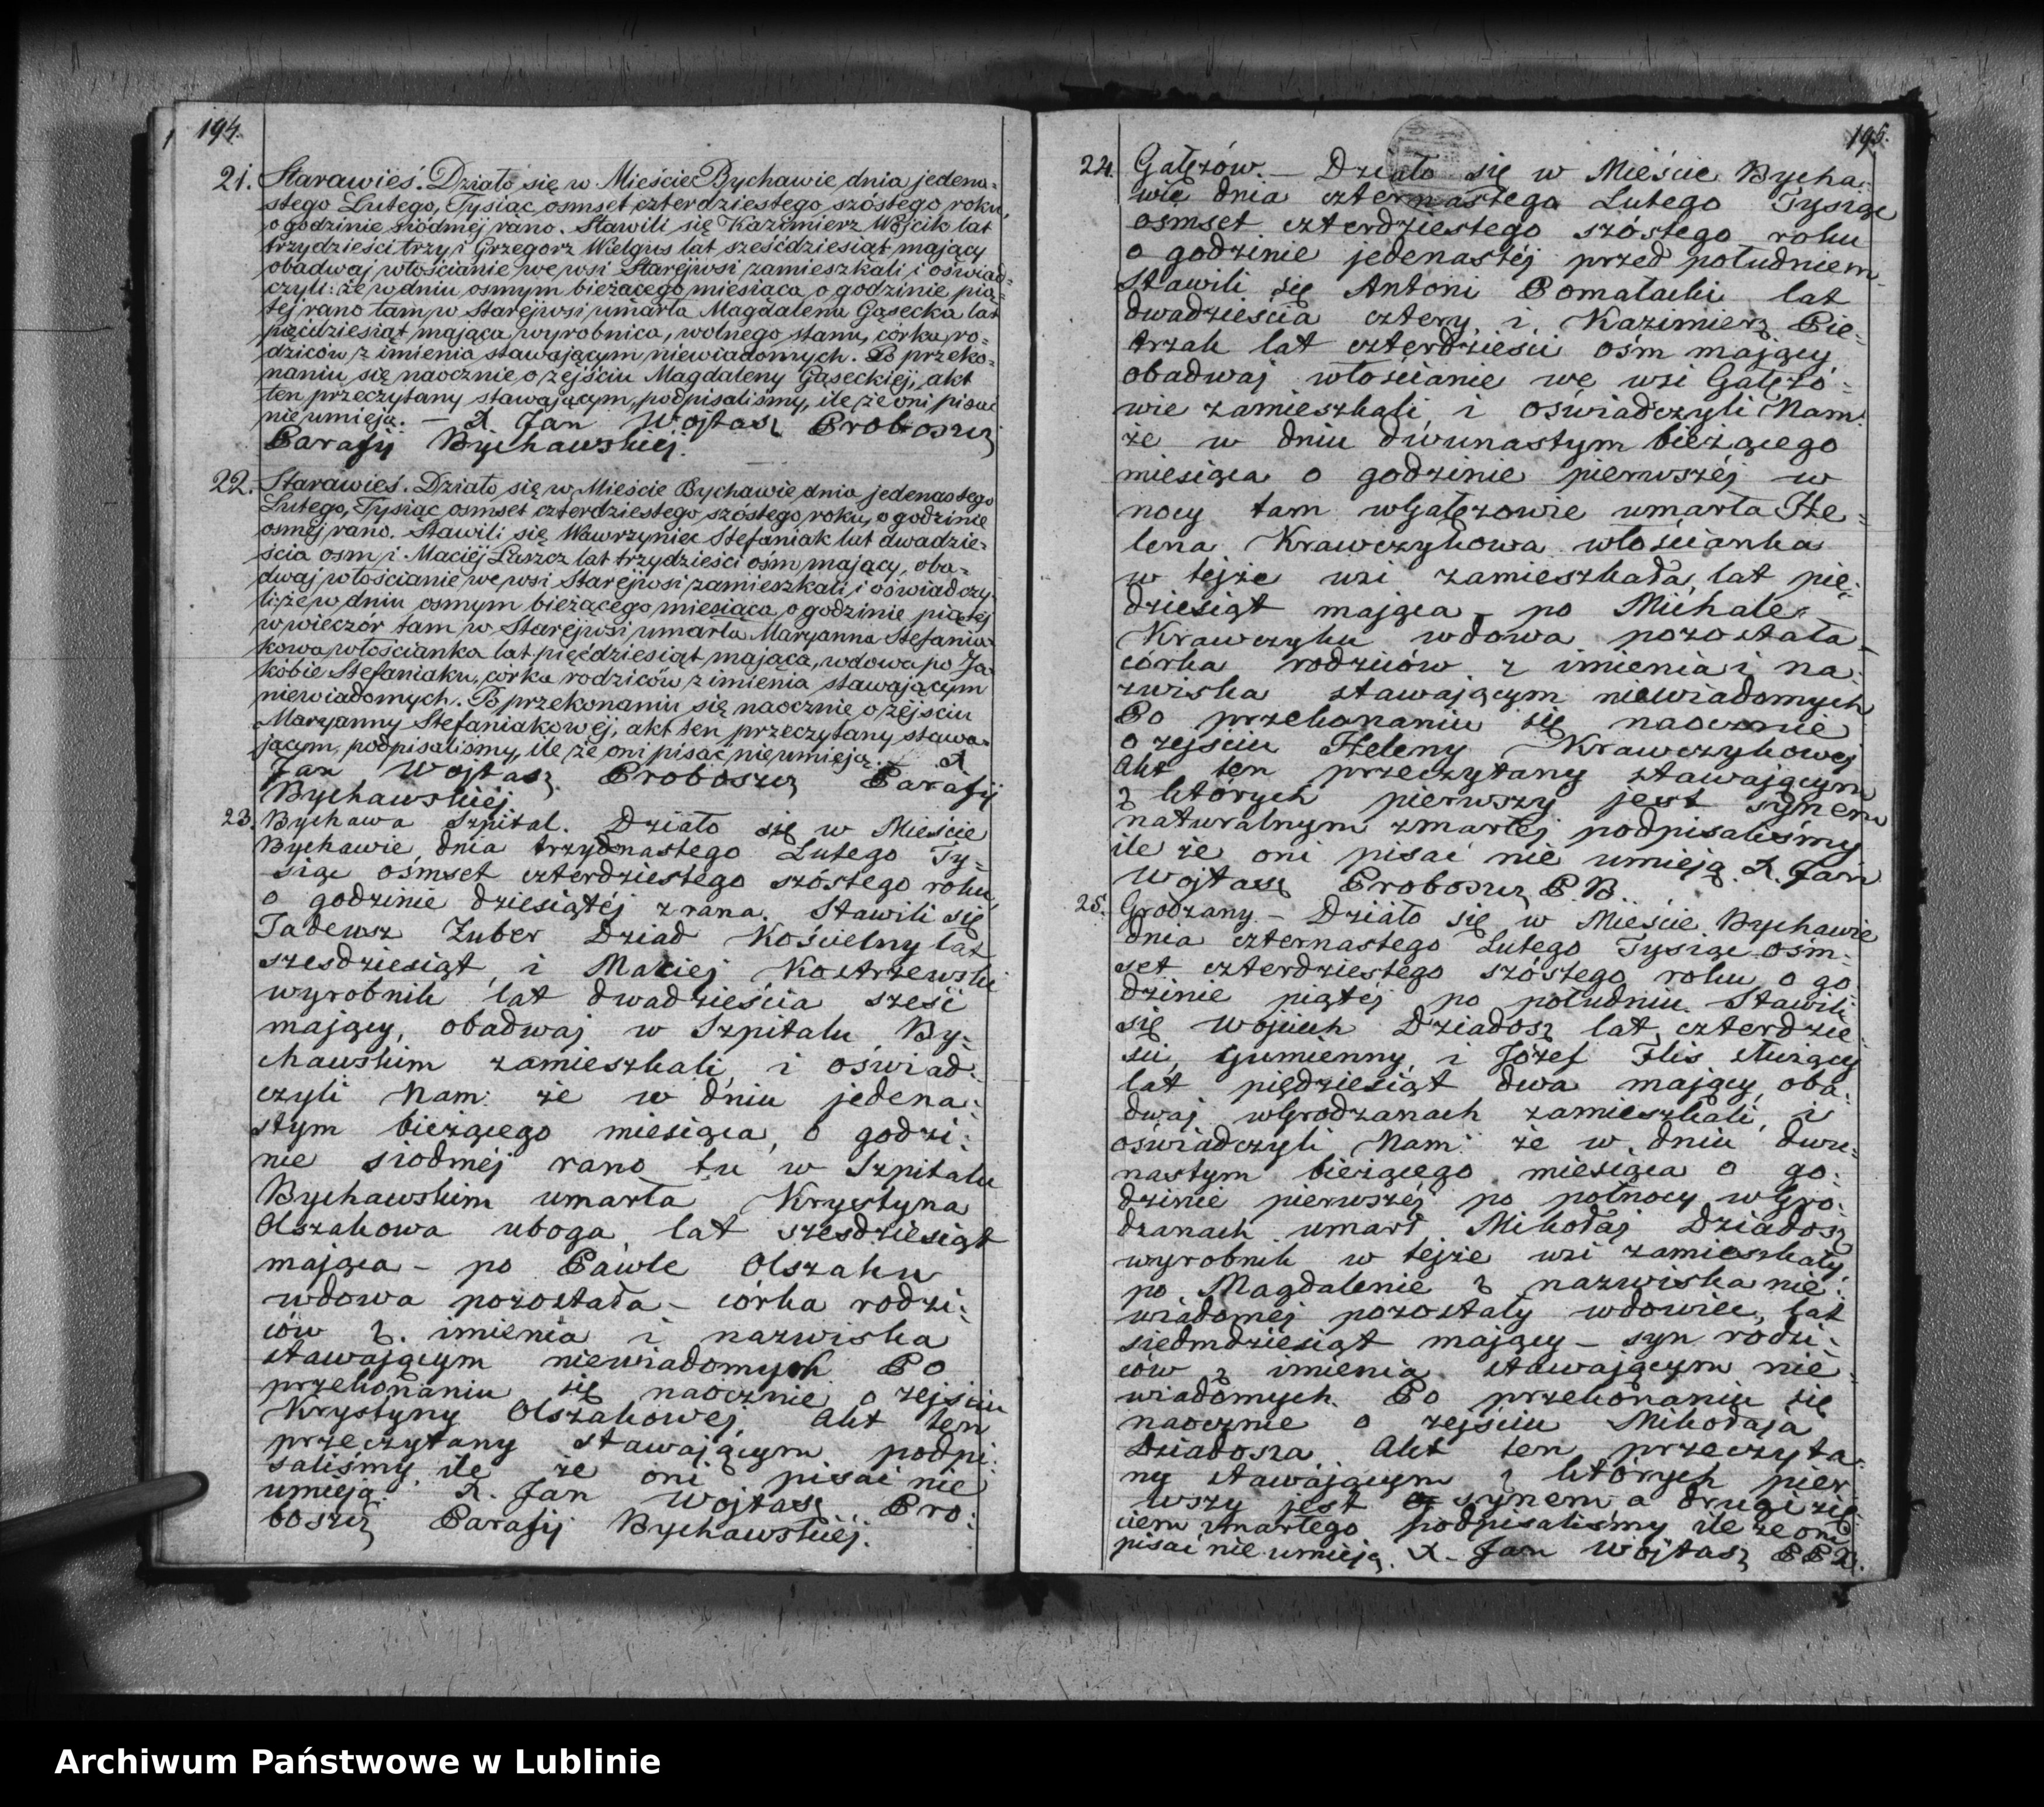 194.
21. Starawieś. Działo się w Mieście Bychawie dnia jedena=
stego Lutego, Tysiąc osmset czterdziestego szóstego roku,
o godzinie siódmej rano. Stawili się Kazimierz Wójcik lat
trzydzieści trzy i Grzegorz Wielgus lat sześćdziesiąt mający
obadwaj włościanie we wsi Starejwsi zamieszkali i oświad=
czyli: że w dniu osmym bieżącego miesiąca o godzinie pią=
tej rano tam w Starejwsi umarła Magdalena Gąsecka lat
pięćdziesiąt mająca, wyrobnica, wolnego stanu, córka ro=
dziców z imienia stawającym niewiadomych. Po przeko=
naniu się naocznie o zejściu Magdaleny Gąseckiej, akt
ten przeczytany stawającym, podpisaliśmy, ile że oni pisać
nie umieją. — X. Jan Wojtasz Proboszcz
Parafij Bychawskiej.
22. Starawieś. Działo się w Mieście Bychawie dnia jedenastego
Lutego, Tysiąc osmset czterdziestego szóstego roku, o godzinie
osmej rano. Stawili się Wawrzyniec Stefaniak lat dwadzie=
ścia osm i Maciej Łaszcz lat trzydzieści ośm mający, oba=
dwaj włościanie we wsi Starejwsi zamieszkali i oświadczy
li: że w dniu osmym bieżącego miesiąca o godzinie piątej
w wieczór tam w Starejwsi umarła Maryanna Stefania=
kowa włościanka lat pięćdziesiąt mająca, wdowa po Ja=
kóbie Stefaniaku, córka rodziców z imienia stawającym
niewiadomych. Po przekonaniu się naocznie o zejściu
Maryanny Stefaniakowej, akt ten przeczytany stawa=
jącym, podpisaliśmy, ile że oni pisać nie umieją. — X
Jan Wojtasz Proboszcz Parafij
Bychawskiéj.
23. Bychawa Szpital. Działo się w Mieście
Bychawie, dnia trzydnastego Lutego Ty=
siąc ośmset czterdziestego szóstego roku,
o godzinie dziesiątéj z rana. Stawili się
Tadeusz Zuber Dziad Kościelny lat
szesdziesiąt, i Maciej Kostrzewski
wyrobnik lat dwadzieścia sześć
mający, obadwaj w Szpitalu By=
chawskim zamieszkali, i oświad=
czyli Nam: że w dniu jedena=
stym bieżącego miesiąca, o godzi=
nie siodméj rano tu w Szpitalu
Bychawskim umarła Krystyna
Olszakowa uboga lat szesdziesiąt
mająca – po Pawle Olszaku
wdowa pozostała – córka rodzi=
ców z. imienia i nazwiska
stawającym niewiadomych Po
przekonaniu się naocznie o zejściu
Krystyny Olszakowej, Akt ten
przeczytany stawającym podpi=
saliśmy, ile że oni pisać nie
umieją. X. Jan Wojtasz Pro=
boszcz Parafij Bychawskiéj.
195.
24. Gałęzów. – Działo się w Mieście Bycha=
wie dnia czternastego Lutego Tysiąc
osmset czterdziestego szóstego roku
o godzinie jedenastéj przed południem
Stawili się Antoni Pomalacki lat
dwadzieścia cztery, i. Kazimierz Pie=
trzak lat czterdzieści ośm mający
obadwaj włościanie we wsi Gałęzo=
wie zamieszkali, i oświadczyli Nam:
że w dniu dwunastym bieżącego
miesiąca o godzinie pierwszéj w
nocy tam w Gałęzowie umarła He=
lena Krawczykowa włościanka
w tejże wsi zamieszkała, lat pię=
dziesiąt mająca – po Michale
Krawczyku wdowa pozostała –
córka rodziców z imienia i na=
zwiska stawającym niewiadomych
Po przekonaniu się naocznie
o zejściu Heleny Krawczykowej
Akt ten przeczytany stawającym
z których pierwszy jest synem
naturalnym zmarłéj podpisaliśmy
ile że oni pisać nie umieją. X. Jan
Wojtasz Proboszcz P. B.
25. Grodzany – Działo się w Mieście Bychawie
dnia czternastego Lutego Tysiąc ośm=
set czterdziestego szóstego roku o go
dzinie piątéj po południu. Stawili
się Wojciech Dziadosz lat czterdzie=
ści, Gumienny, i Józef Flis służący
lat piędziesiąt dwa mający, oba=
dwaj w Grodzanach zamieszkali, i
oświadczyli Nam: że w dniu dwu=
nastym bieżącego miesiąca o go=
dzinie pierwszéj po północy w Gro=
dzanach umarł Mikołaj Dziadosz
wyrobnik w tejże wsi zamieszkały,
po Magdalenie z nazwiska nie=
wiadoméj pozostały wdowiec, lat
siedmdziesiąt mający – syn rodzi=
ców z imienia stawającym nie=
wiadomych. Po przekonaniu się
naocznie o zejściu Mikołaja
Dziadosza Akt ten przeczyta=
ny stawającym z których pier=
wszy jest synem a drugi zię=
ciem zmarłego podpisaliśmy ile że oni
pisać nie umieją. X. Jan Wojtasz P P B.
Archiwum Państwowe w Lublinie